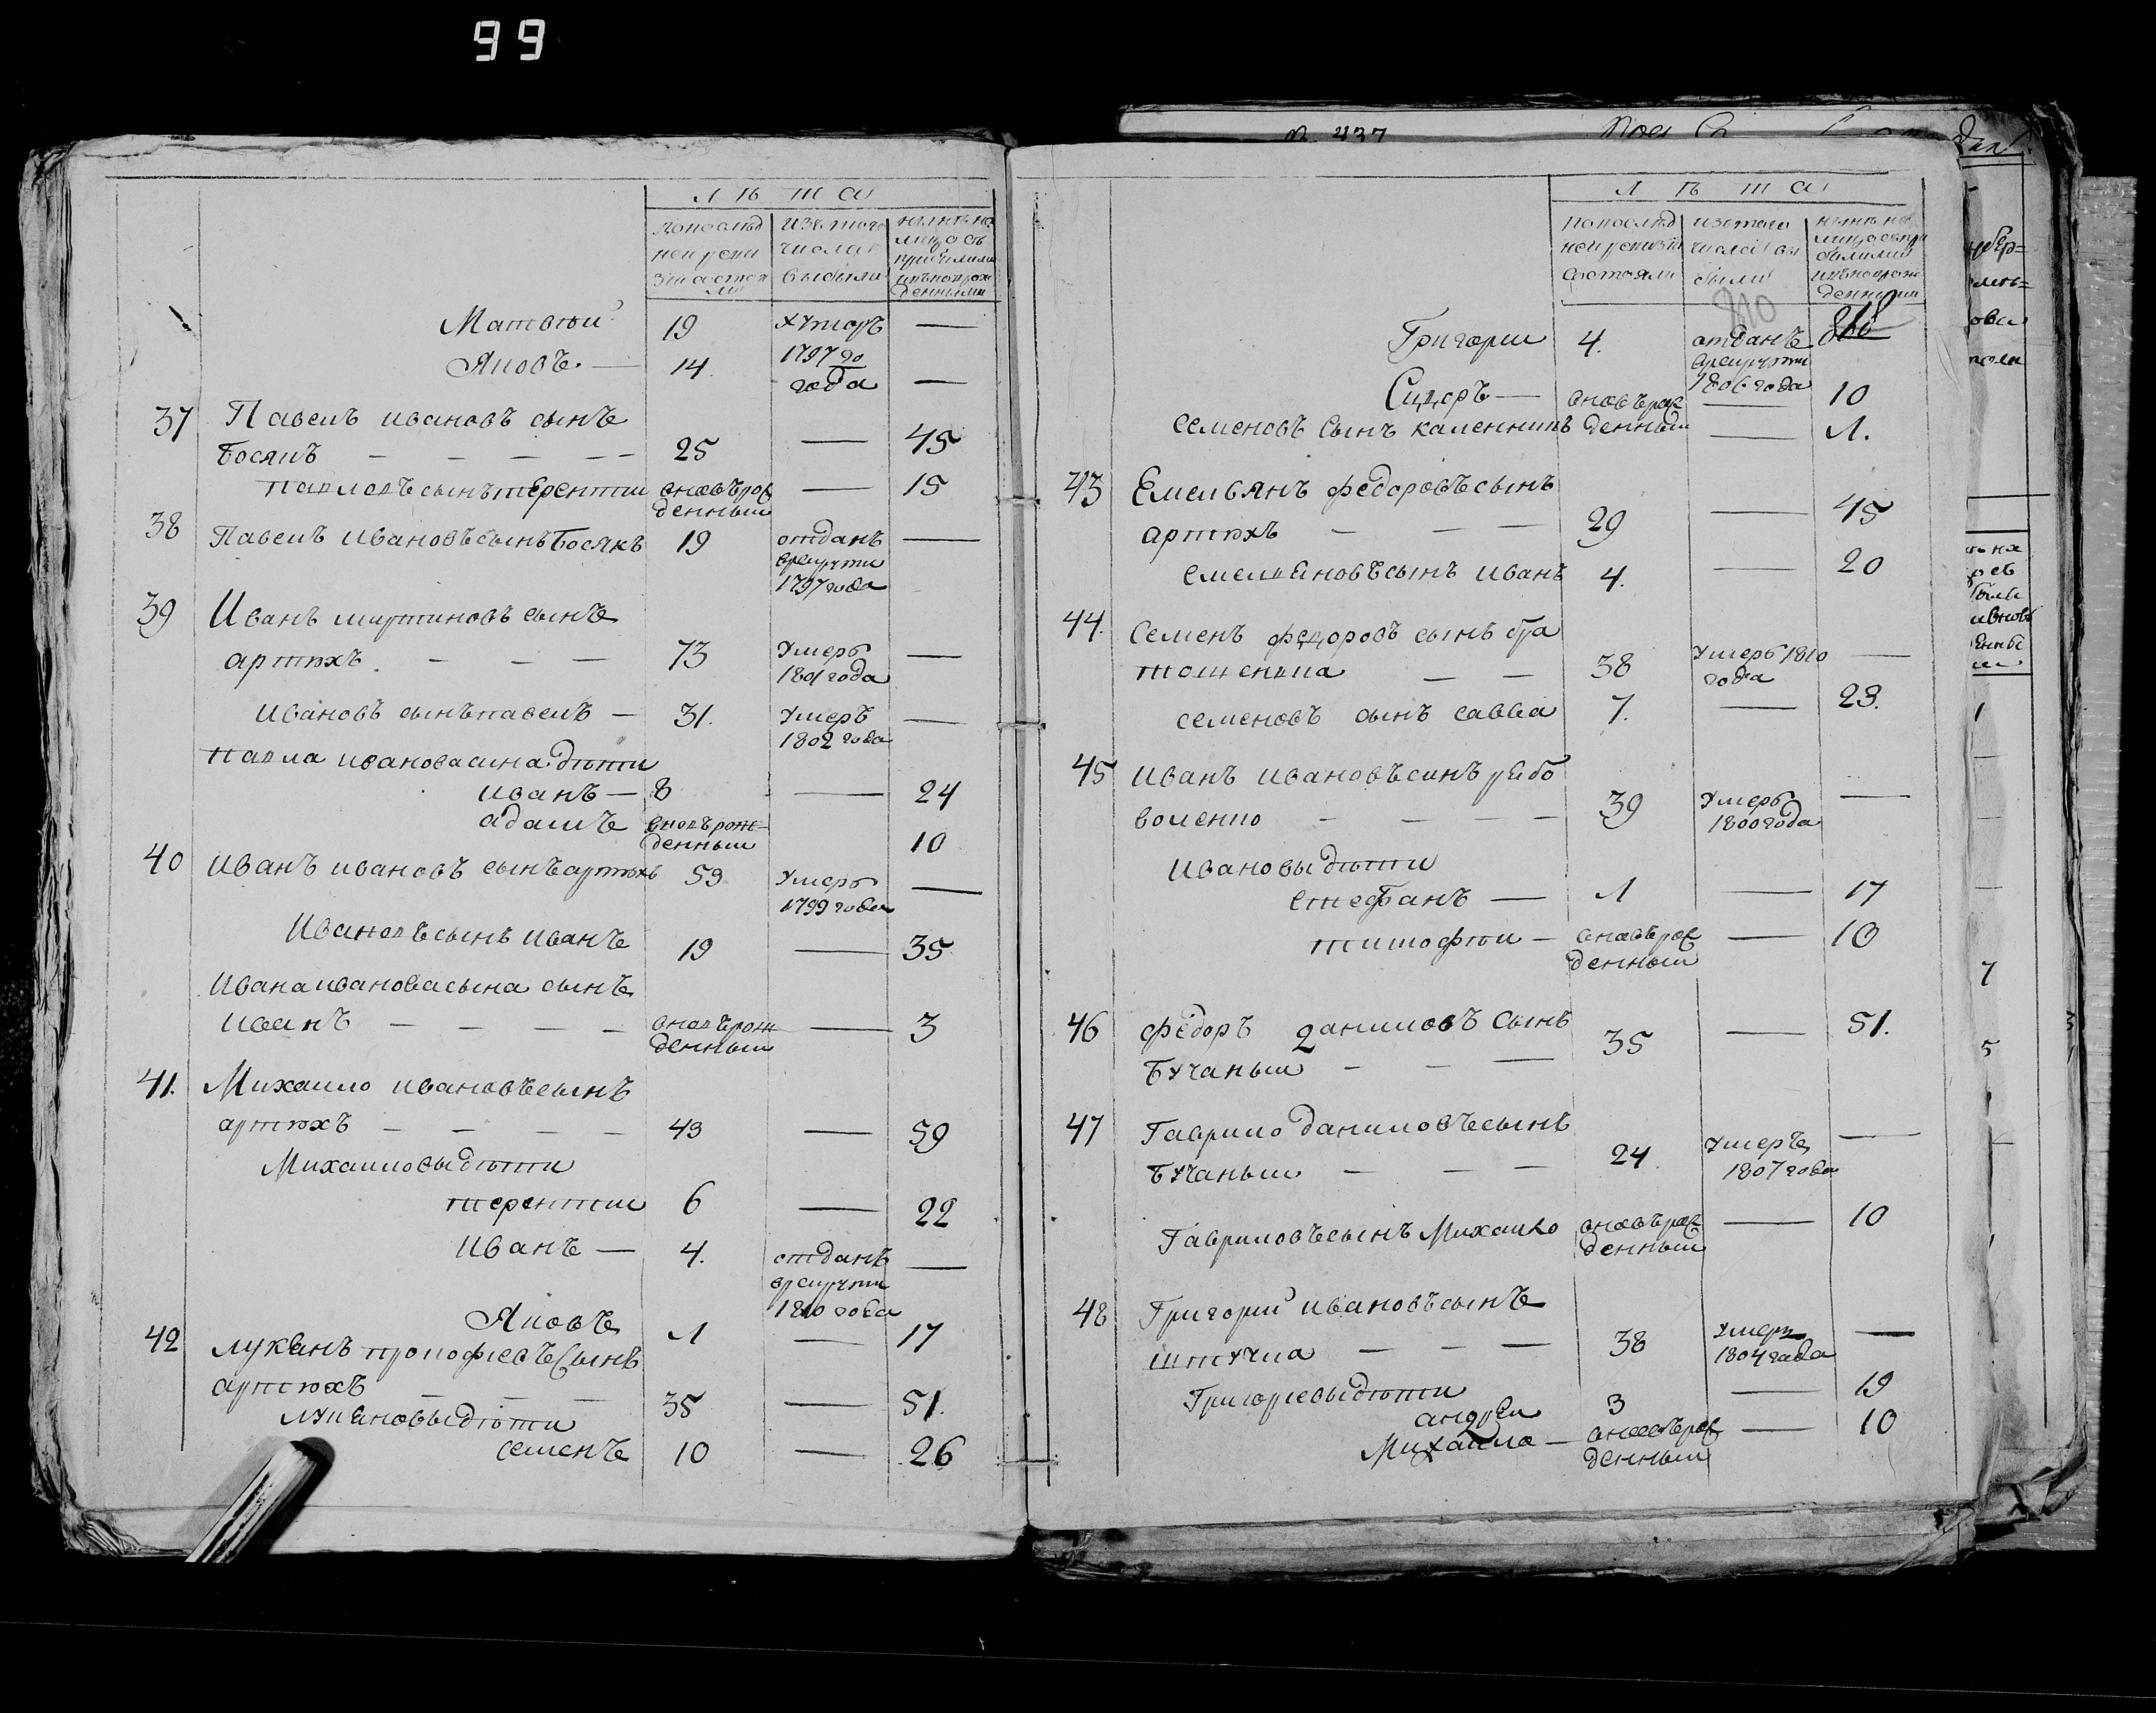 99
Л ѣ т а
попослѣд
ней реви
зіи состоя
ли
изъ того
числа
выбыли
нынѣ на
лицо съ
прибылыми
ивновьрож
денными
Матвѣй 19 хуторъ —
Яковъ — 14. 1797 го
года —
37 Павелъ ивановъ сынъ
босякъ — — — — — 25 — 45
павловъ сынъ терентии вновь рож — 15
денныи
38 Павелъ ивановъ сынъ босякъ 19 отданъ —
врекруты
1797 года
39 Иванъ мартиновъ сынъ
артюхъ — — — 73 Умеръ —
1801 года
ивановъ сынъ павелъ — 31. Умеръ —
1802 года
павла иванова сина дѣти
иванъ — 8 — 24
адамъ вновь рож-
денныи 10
40 иванъ ивановъ сынъ артюхъ 59 Умеръ —
1799 года
ивановъ сынъ иванъ 19 — 35
ивана иванова сына сынъ
иванъ — — — — вновь рож — 3
денныи
41. Михаило ивановъ сынъ
артюхъ — — — — 43 — 59
Михаиловы дѣти
терентии 6 — 22
иванъ — 4. отданъ —
врекруты
1810 года
Яковъ 1 — 17
42 лукянъ прокофіевъ Сынъ
артюхъ — — — 35 — 51.
лукяновы дѣти
семенъ 10 — 26
N. 437
Л ѣ т а
попослѣд
ней ревизіи
состояли
изтого
числа вы
были
нынѣ на
лицо съ при
былыми
ивновьрож
денными
810
Григории 4. отданъ
врекруты
1806 года
Сидоръ — вновь рож — 10
семеновъ Сынъ каленникъ денныи — 1.
43 Емельянъ федоровъ сынъ
артюхъ — — — 29 — 45
емеляновъ сынъ иванъ 4. — 20
44. Семенъ федоровъ сынъ бра
тошенка — — 38 Умеръ 1810 —
года
семеновъ сынъ савва 7. — 23.
45 иванъ ивановъ синъ рябо
воленко — — — — 39 Умеръ —
1800 года
ивановы дѣти
стефанъ — 1 — 17
тимофѣи — вновь рож — 10
денныи
46 федоръ даниловъ Сынъ
бучаныи — — — 35 — 51.
47 Гаврило даниловъ сынъ
бучаныи — — — 24 Умеръ —
1807 года
Гавриловъ сынъ Михаило вновь рож — 10
денныи
48 Григорий ивановъ сынъ
штучка — — — 38 Умеръ —
1804 года
Григориевы дѣти
андрей 3 — 19
Михаила — вновь рож — 10
денныи